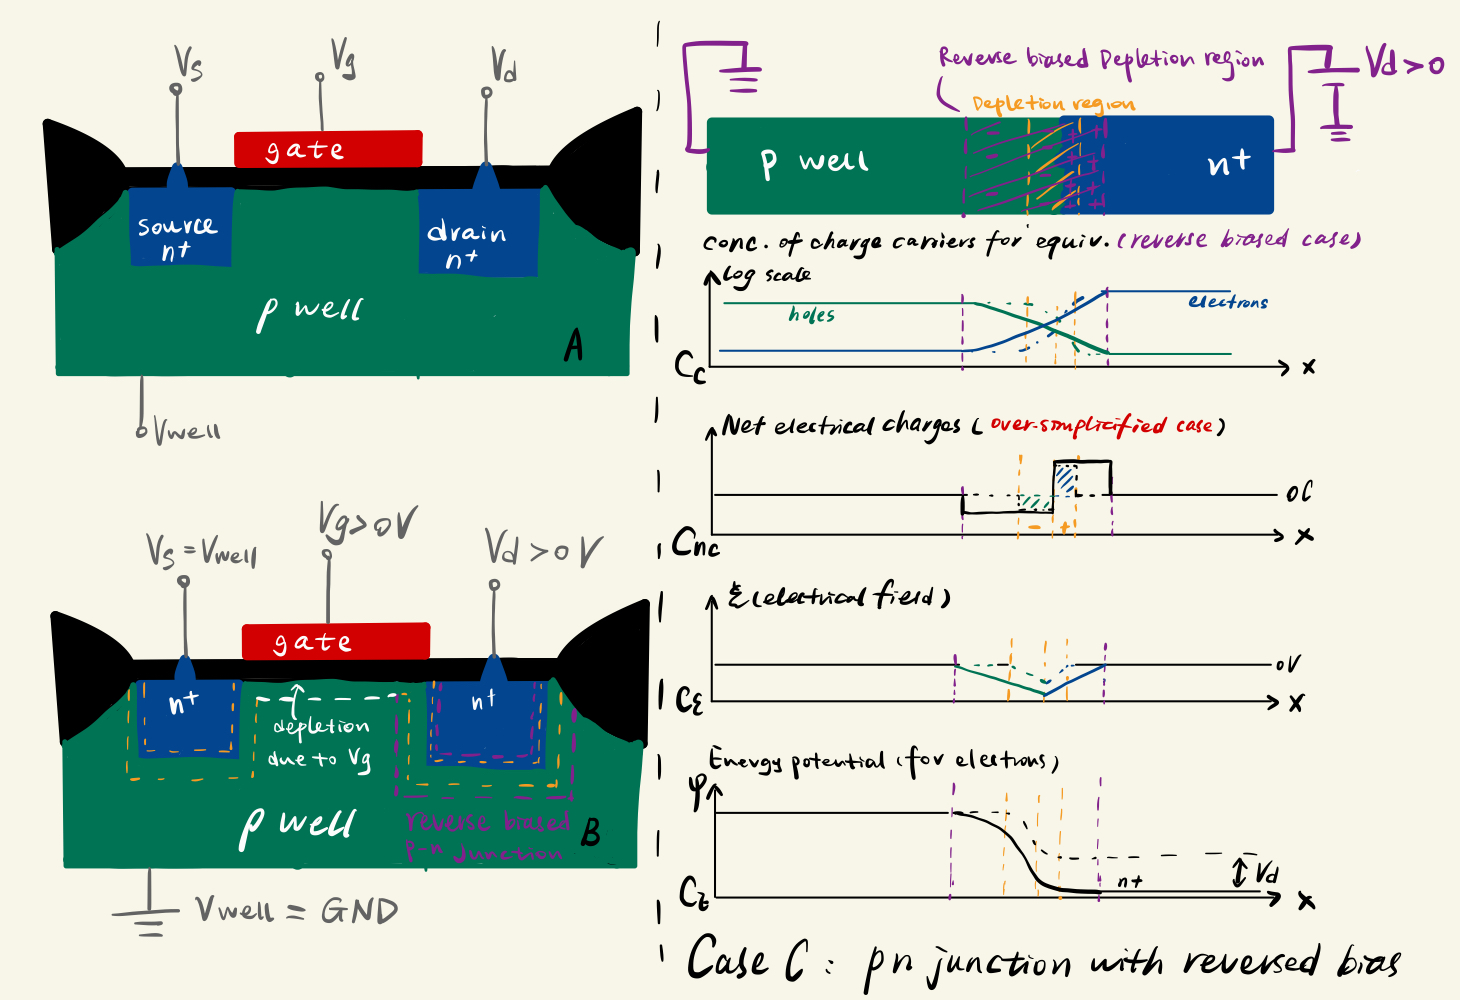 Vs
Vg
Vd
gate
source
n+
drain
n+
p well
A
Vwell
Vs = Vwell
Vg>0V
Vd >0 V
gate
n+
n+
depletion
due to Vg
p well
reverse biased
p-n junction
B
Vwell = GND
Reverse biased Depletion region
Depletion region
Vd > 0
p well
- - - -
+ + + + + + + +
n+
conc. of charge carriers for equiv. (reverse biased case)
Log scale
holes
electrons
Cc
x
Net electrical charges ( over-simplicified case)
0C
- +
Cnc
x
ξ (electrical field)
0V
Cξ
x
Energy potential (for electrons)
φ
n+
Vd
Cξ
x
Case C : pn junction with reversed bias